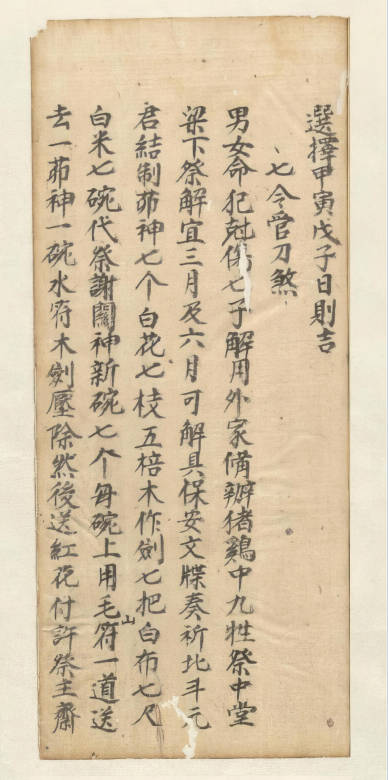 選擇甲寅戊子日則吉
七令管刀煞
男女命犯尅傷七子解用外家備辦猪鷄中九牲祭中堂
梁下祭解宜三月及六月可解具保安文牒奏祈北斗元
君結制茆神七个白花七枝五棓木作劍七把白布七尺
白米七碗代祭謝關神新碗七个每碗上用毛山符一道送
去一茆神一碗水符木劍壓除然後送紅花付許祭主齋